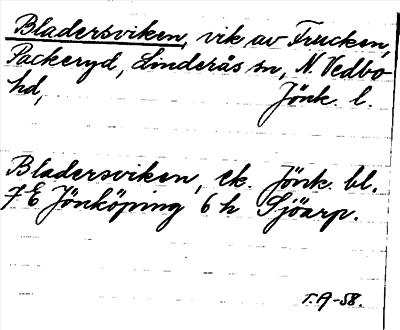 Bladersviken, vik av Frucken,
Packeryd, Linderås sn, N. Vedbo
hd, Jönk. l.
Bladersviken, ek. Jönk. bl.
7 E Jönköping 6 h Sjöarp.
T.A-58.